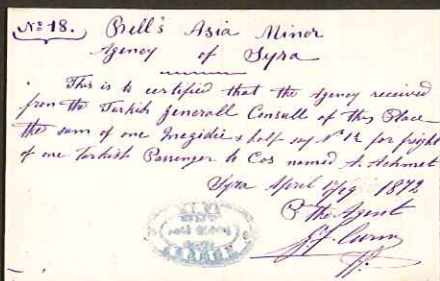 No 18. Bell's Asia Minor
Agency of Syra
This is to certified that the Agency received
from the Turkish Generall Consull of this Place
the sum of one Megidié & half say No 1½ for freight
of one Turkish Passenger to Cos named A. Achmet
Syra April 17/29 1872
P the Agent